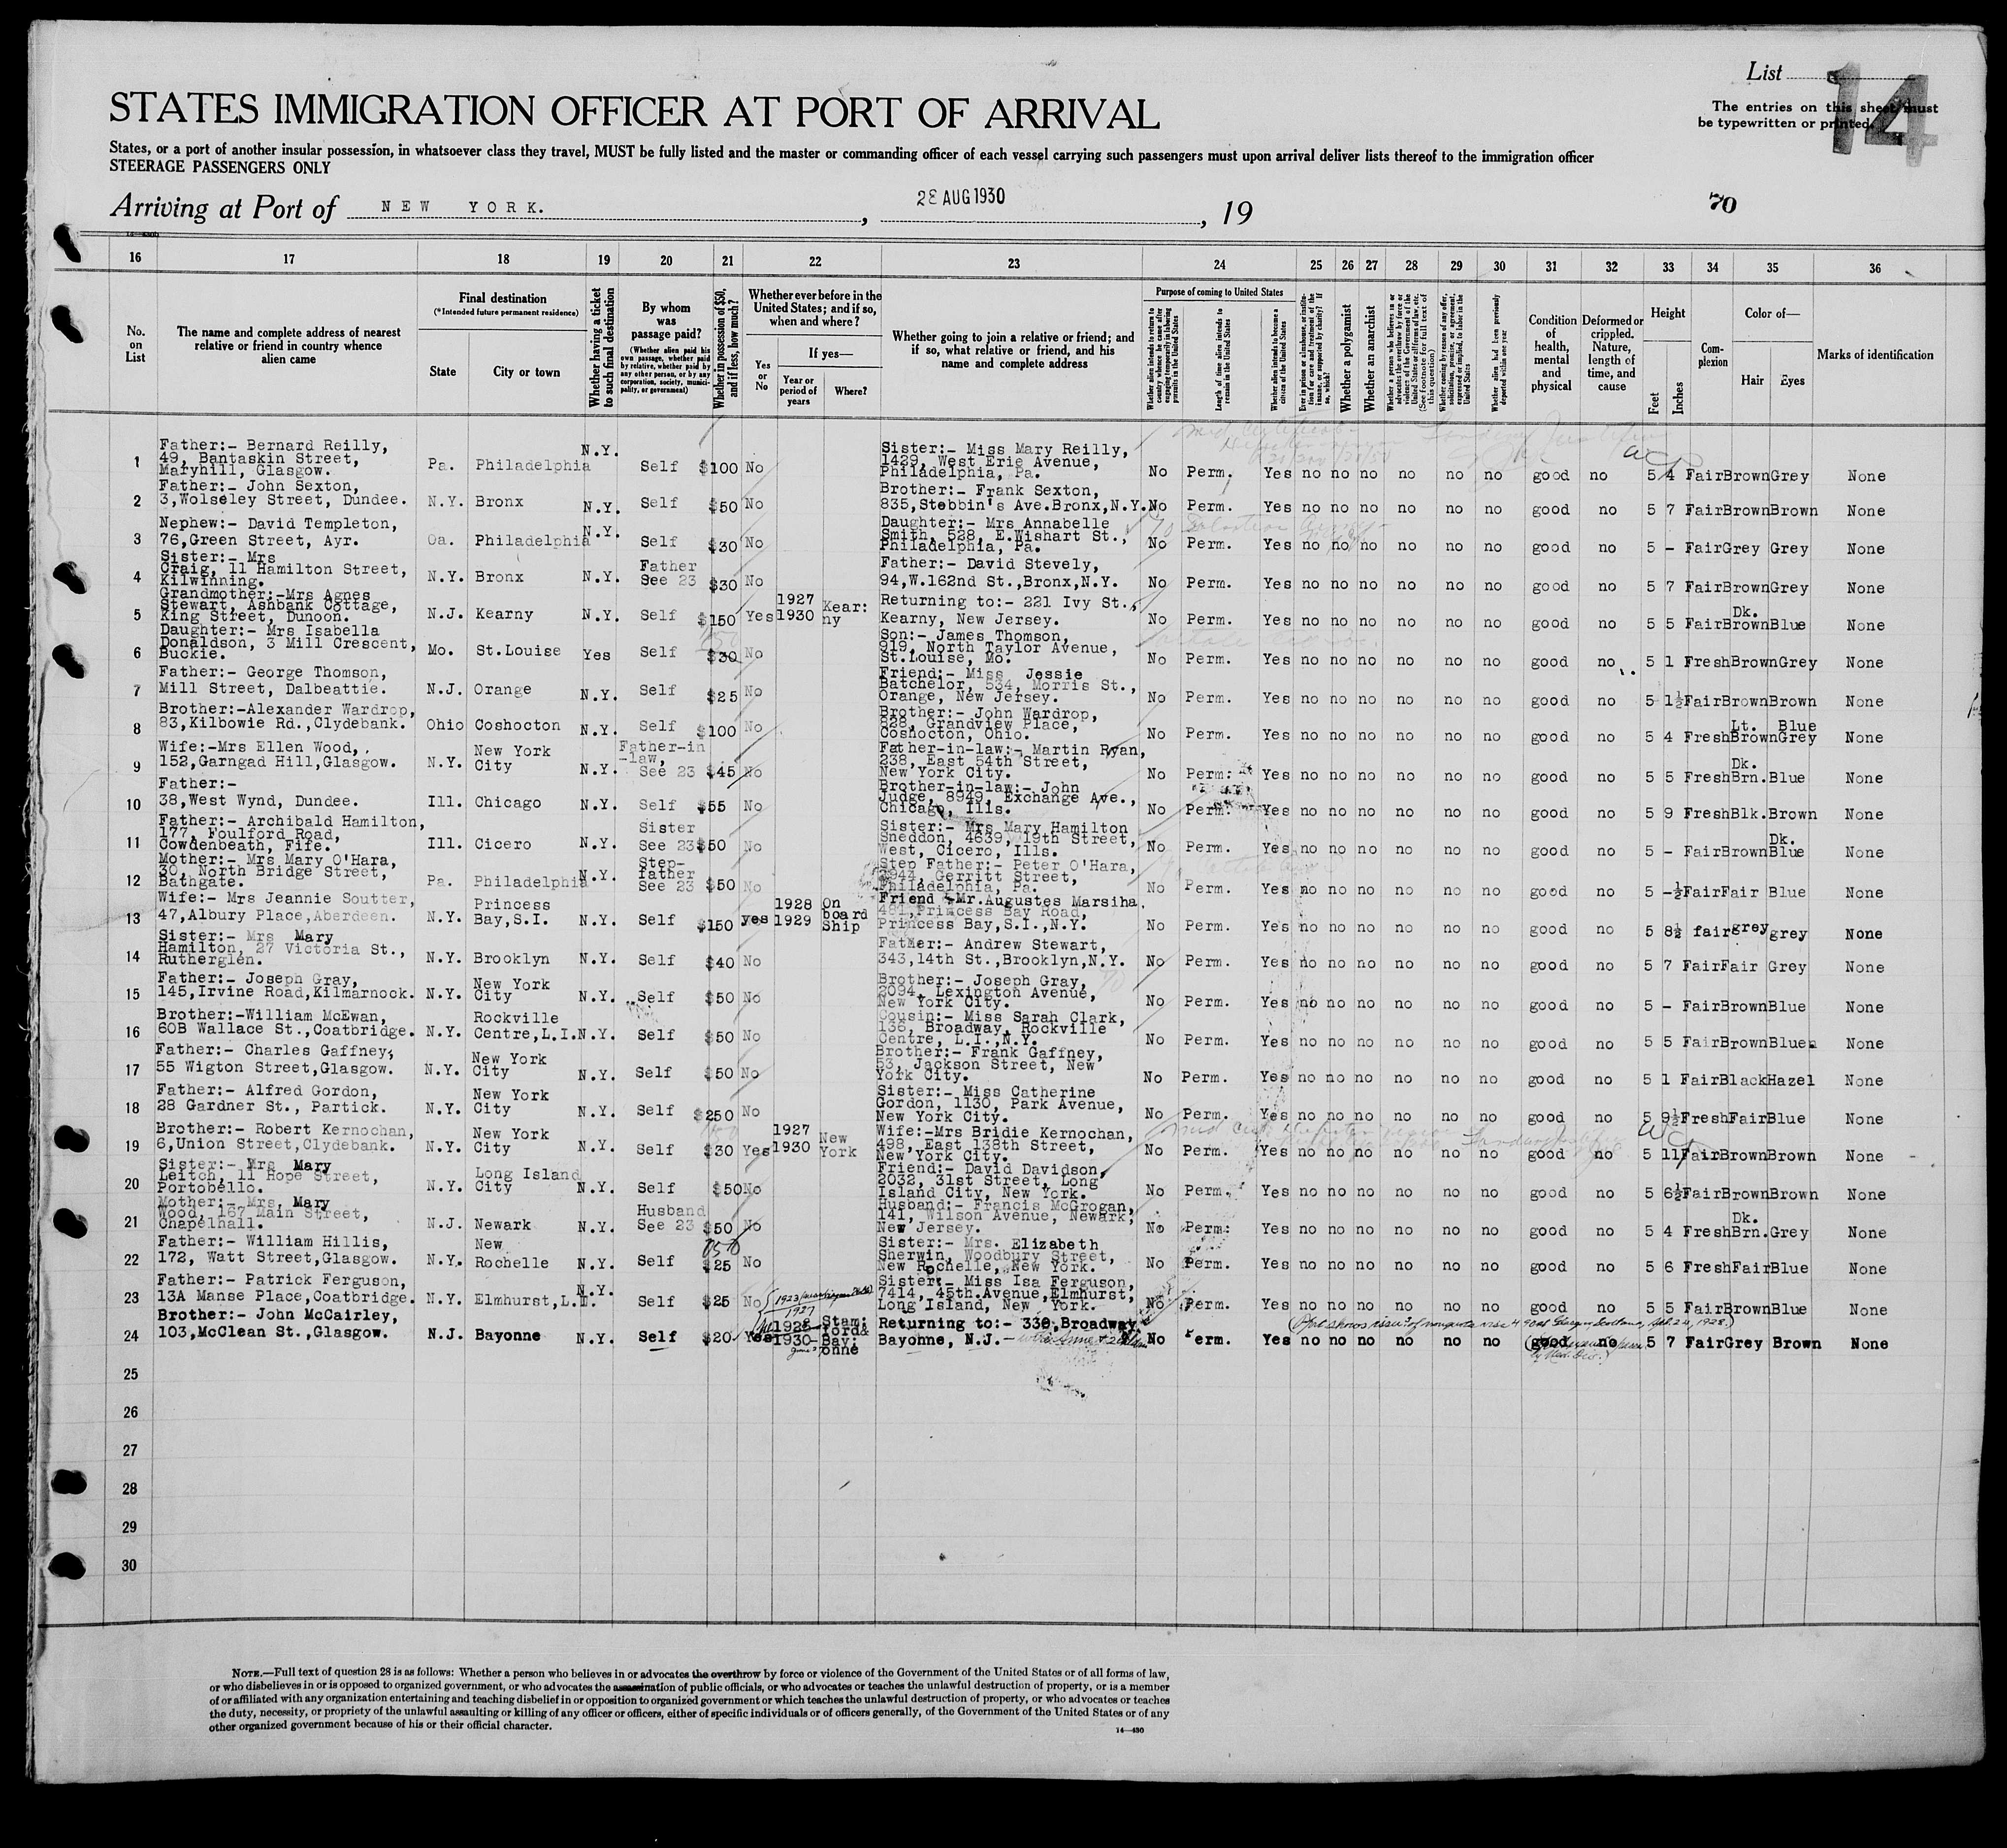 List 14
STATES IMMIGRATION OFFICER AT PORT OF ARRIVAL
The entries on this sheet must
be typewritten or printed.
States, or a port of another insular possession, in whatsoever class they travel, MUST be fully listed and the master or commanding officer of each vessel carrying such passengers must upon arrival deliver lists thereof to the immigration officer
STEERAGE PASSENGERS ONLY
Arriving at Port of NEW YORK. , 28 AUG 1930 , 19
70
16 17 18 19 20 21 22 23 24 25 26 27 28 29 30 31 32 33 34 35 36
No. on List
The name and complete address of nearest relative or friend in country whence alien came
Final destination
(*Intended future permanent residence)
State
City or town
Whether having a ticket to such final destination
By whom was passage paid?
(Whether alien paid his own passage, whether paid by relative, whether paid by any other person, or by any corporation, society, municipality, or government)
Whether in possession of $50, and if less, how much?
Whether ever before in the United States; and if so, when and where?
Yes or No
If yes—
Year or period of years
Where?
Whether going to join a relative or friend; and if so, what relative or friend, and his name and complete address
Purpose of coming to United States
Whether alien intends to return to country whence he came after engaging temporarily in laboring pursuits in the United States
Length of time alien intends to remain in the United States
Whether alien intends to become a citizen of the United States
Ever in prison or almshouse, or institution for care and treatment of the insane, or supported by charity? If so, which?
Whether a polygamist
Whether an anarchist
Whether a person who believes in or advocates the overthrow by force or violence of the Government of the United States or all forms of law, etc. (See footnote for full text of this question)
Whether coming by reason of any offer, solicitation, promise, or agreement, expressed or implied, to labor in the United States
Whether alien had been previously deported within one year
Condition of health, mental and physical
Deformed or crippled. Nature, length of time, and cause
Height
Feet
Inches
Complexion
Color of—
Hair
Eyes
Marks of identification
1 Father:- Bernard Reilly, 49, Bantaskin Street, Maryhill, Glasgow. Pa. Philadelphia N.Y. Self $100 No Sister:- Miss Mary Reilly, 1429, West Erie Avenue, Philadelphia, Pa. No Perm. Yes no no no no no no good no 5 4 Fair Brown Grey None
2 Father:- John Sexton, 3,Wolseley Street, Dundee. N.Y. Bronx N.Y. Self $50 No Brother:- Frank Sexton, 835,Stebbin's Ave.Bronx,N.Y. No Perm. Yes no no no no no no good no 5 7 Fair Brown Brown None
3 Nephew:- David Templeton, 76,Green Street, Ayr. Oa. Philadelphia N.Y. Self $30 No Daughter:- Mrs Annabelle Smith, 528, E.Wishart St., Philadelphia, Pa. No Perm. Yes no no no no no no good no 5 - Fair Grey Grey None
4 Sister:- Mrs Craig, 11 Hamilton Street, Kilwinning. N.Y. Bronx N.Y. Father See 23 $30 No Father:- David Stevely, 94,W.162nd St.,Bronx,N.Y. No Perm. Yes no no no no no no good no 5 7 Fair Brown Grey None
5 Grandmother:-Mrs Agnes Stewart, Ashbank Cottage, King Street, Dunoon. N.J. Kearny N.Y. Self $150 Yes 1927 1930 Kear: ny Returning to:- 221 Ivy St., Kearny, New Jersey. No Perm. Yes no no no no no no good no 5 5 Fair Dk. Brown Blue None
6 Daughter:- Mrs Isabella Donaldson, 3 Mill Crescent, Buckie. Mo. St.Louise Yes Self $30 No Son:- James Thomson, 919, North Taylor Avenue, St.Louise, Mo. No Perm. Yes no no no no no no good no 5 1 Fresh Brown Grey None
7 Father:- George Thomson, Mill Street, Dalbeattie. N.J. Orange N.Y. Self $25 No Friend:- Miss Jessie Batchelor, 534, Morris St., Orange, New Jersey. No Perm. Yes no no no no no no good no 5 1½ Fair Brown Brown None
8 Brother:-Alexander Wardrop, 83,Kilbowie Rd.,Clydebank. Ohio Coshocton N.Y. Self $100 No Brother:- John Wardrop, 828, Grandview Place, Coshocton, Ohio. No Perm. Yes no no no no no no good no 5 4 Fresh Lt. Brown Blue Grey None
9 Wife:-Mrs Ellen Wood, 152,Garngad Hill,Glasgow. N.Y. New York City N.Y. Father-in-law, See 23 $45 No Father-in-law:- Martin Ryan, 238, East 54th Street, New York City. No Perm: Yes no no no no no no good no 5 5 Fresh Dk. Brn. Blue None
10 Father:- 38,West Wynd, Dundee. Ill. Chicago N.Y. Self $55 No Brother-in-law:- John Judge, 8949, Exchange Ave., Chicago, Ills. No Perm. Yes no no no no no no good no 5 9 Fresh Blk. Brown None
11 Father:- Archibald Hamilton, 177, Foulford Road, Cowdenbeath, Fife. Ill. Cicero N.Y. Sister See 23 $50 No Sister:- Mrs Mary Hamilton Sneddon, 4639, 19th Street, West, Cicero, Ills. No Perm. Yes no no no no no no good no 5 - Fair Brown Dk. Blue None
12 Mother:- Mrs Mary O'Hara, 30, North Bridge Street, Bathgate. Pa. Philadelphia N.Y. Step-father See 23 $50 No Step Father:- Peter O'Hara, 2944, Gerritt Street, Philadelphia, Pa. No Perm. Yes no no no no no no good no 5 -½ Fair Fair Blue None
13 Wife:- Mrs Jeannie Soutter, 47,Albury Place,Aberdeen. N.Y. Princess Bay,S.I. N.Y. Self $150 yes 1928 1929 On board Ship Friend :-Mr.Augustes Marsiha. 481,Princess Bay Road, Princess Bay,S.I.,N.Y. No Perm. Yes no no no no no no good no 5 8½ fair grey grey None
14 Sister:- Mrs Mary Hamilton, 27 Victoria St., Rutherglen. N.Y. Brooklyn N.Y. Self $40 No Father:- Andrew Stewart, 343,14th St.,Brooklyn,N.Y. No Perm. Yes no no no no no no good no 5 7 Fair Fair Grey None
15 Father:- Joseph Gray, 145,Irvine Road,Kilmarnock. N.Y. New York City N.Y. Self $50 No Brother:- Joseph Gray, 2094, Lexington Avenue, New York City. No Perm. Yes no no no no no no good no 5 - Fair Brown Blue None
16 Brother:-William McEwan, 60B Wallace St.,Coatbridge. N.Y. Rockville Centre,L.I. N.Y. Self $50 No Cousin:- Miss Sarah Clark, 136, Broadway, Rockville Centre, L.I.,N.Y. No Perm. Yes no no no no no no good no 5 5 Fair Brown Blue None
17 Father:- Charles Gaffney, 55 Wigton Street,Glasgow. N.Y. New York City N.Y. Self $50 No Brother:- Frank Gaffney, 53, Jackson Street, New York City. No Perm. Yes no no no no no no good no 5 1 Fair Black Hazel None
18 Father:- Alfred Gordon, 28 Gardner St., Partick. N.Y. New York City N.Y. Self $250 No Sister:- Miss Catherine Gordon, 1130, Park Avenue, New York City. No Perm. Yes no no no no no no good no 5 9½ Fresh Fair Blue None
19 Brother:- Robert Kernochan, 6,Union Street,Clydebank. N.Y. New York City N.Y. Self $30 Yes 1927 1930 New York Wife:-Mrs Bridie Kernochan, 498, East 138th Street, New York City. No Perm. Yes no no no no no no good no 5 11 Fair Brown Brown None
20 Sister:- Mrs Mary Leitch, 11 Hope Street, Portobello. N.Y. Long Island City N.Y. Self $50 No Friend:- David Davidson, 2032, 31st Street, Long Island City, New York. No Perm. Yes no no no no no no good no 5 6½ Fair Brown Brown None
21 Mother:- Mrs, Mary Wood, 167 Main Street, Chapelhall. N.J. Newark N.Y. Husband See 23 $50 No Husband:- Francis McGrogan, 141, Wilson Avenue, Newark, New Jersey. No Perm: Yes no no no no no no good no 5 4 Fresh Dk. Brn. Grey None
22 Father:- William Hillis, 172, Watt Street,Glasgow. N.Y. New Rochelle N.Y. Self $25 No Sister:- Mrs. Elizabeth Sherwin, Woodbury Street, New Rochelle, New York. No Perm. Yes no no no no no no good no 5 6 Fresh Fair Blue None
23 Father:- Patrick Ferguson, 13A Manse Place,Coatbridge. N.Y. Elmhurst,L.I. N.Y. Self $25 No Sister:- Miss Isa Ferguson, 7414, 45th.Avenue,Elmhurst, Long Island, New York. No Perm. Yes no no no no no no good no 5 5 Fair Brown Blue None
1923
1927
24 Brother:- John McCairley, 103,McClean St.,Glasgow. N.J. Bayonne N.Y. Self $20 Yes 1928 1930 Stam: ford& Bay: onne Returning to:- 330,Broadway, Bayonne, N.J. No Perm. Yes no no no no no no good no 5 7 Fair Grey Brown None
25
26
27
28
29
30
NOTE.—Full text of question 28 is as follows: Whether a person who believes in or advocates the overthrow by force or violence of the Government of the United States or of all forms of law,
or who disbelieves in or is opposed to organized government, or who advocates the assassination of public officials, or who advocates or teaches the unlawful destruction of property, or is a member
of or affiliated with any organization entertaining and teaching disbelief in or opposition to organized government or which teaches the unlawful destruction of property, or who advocates or teaches
the duty, necessity, or propriety of the unlawful assaulting or killing of any officer or officers, either of specific individuals or of officers generally, of the Government of the United States or of any
other organized government because of his or their official character.
14—430